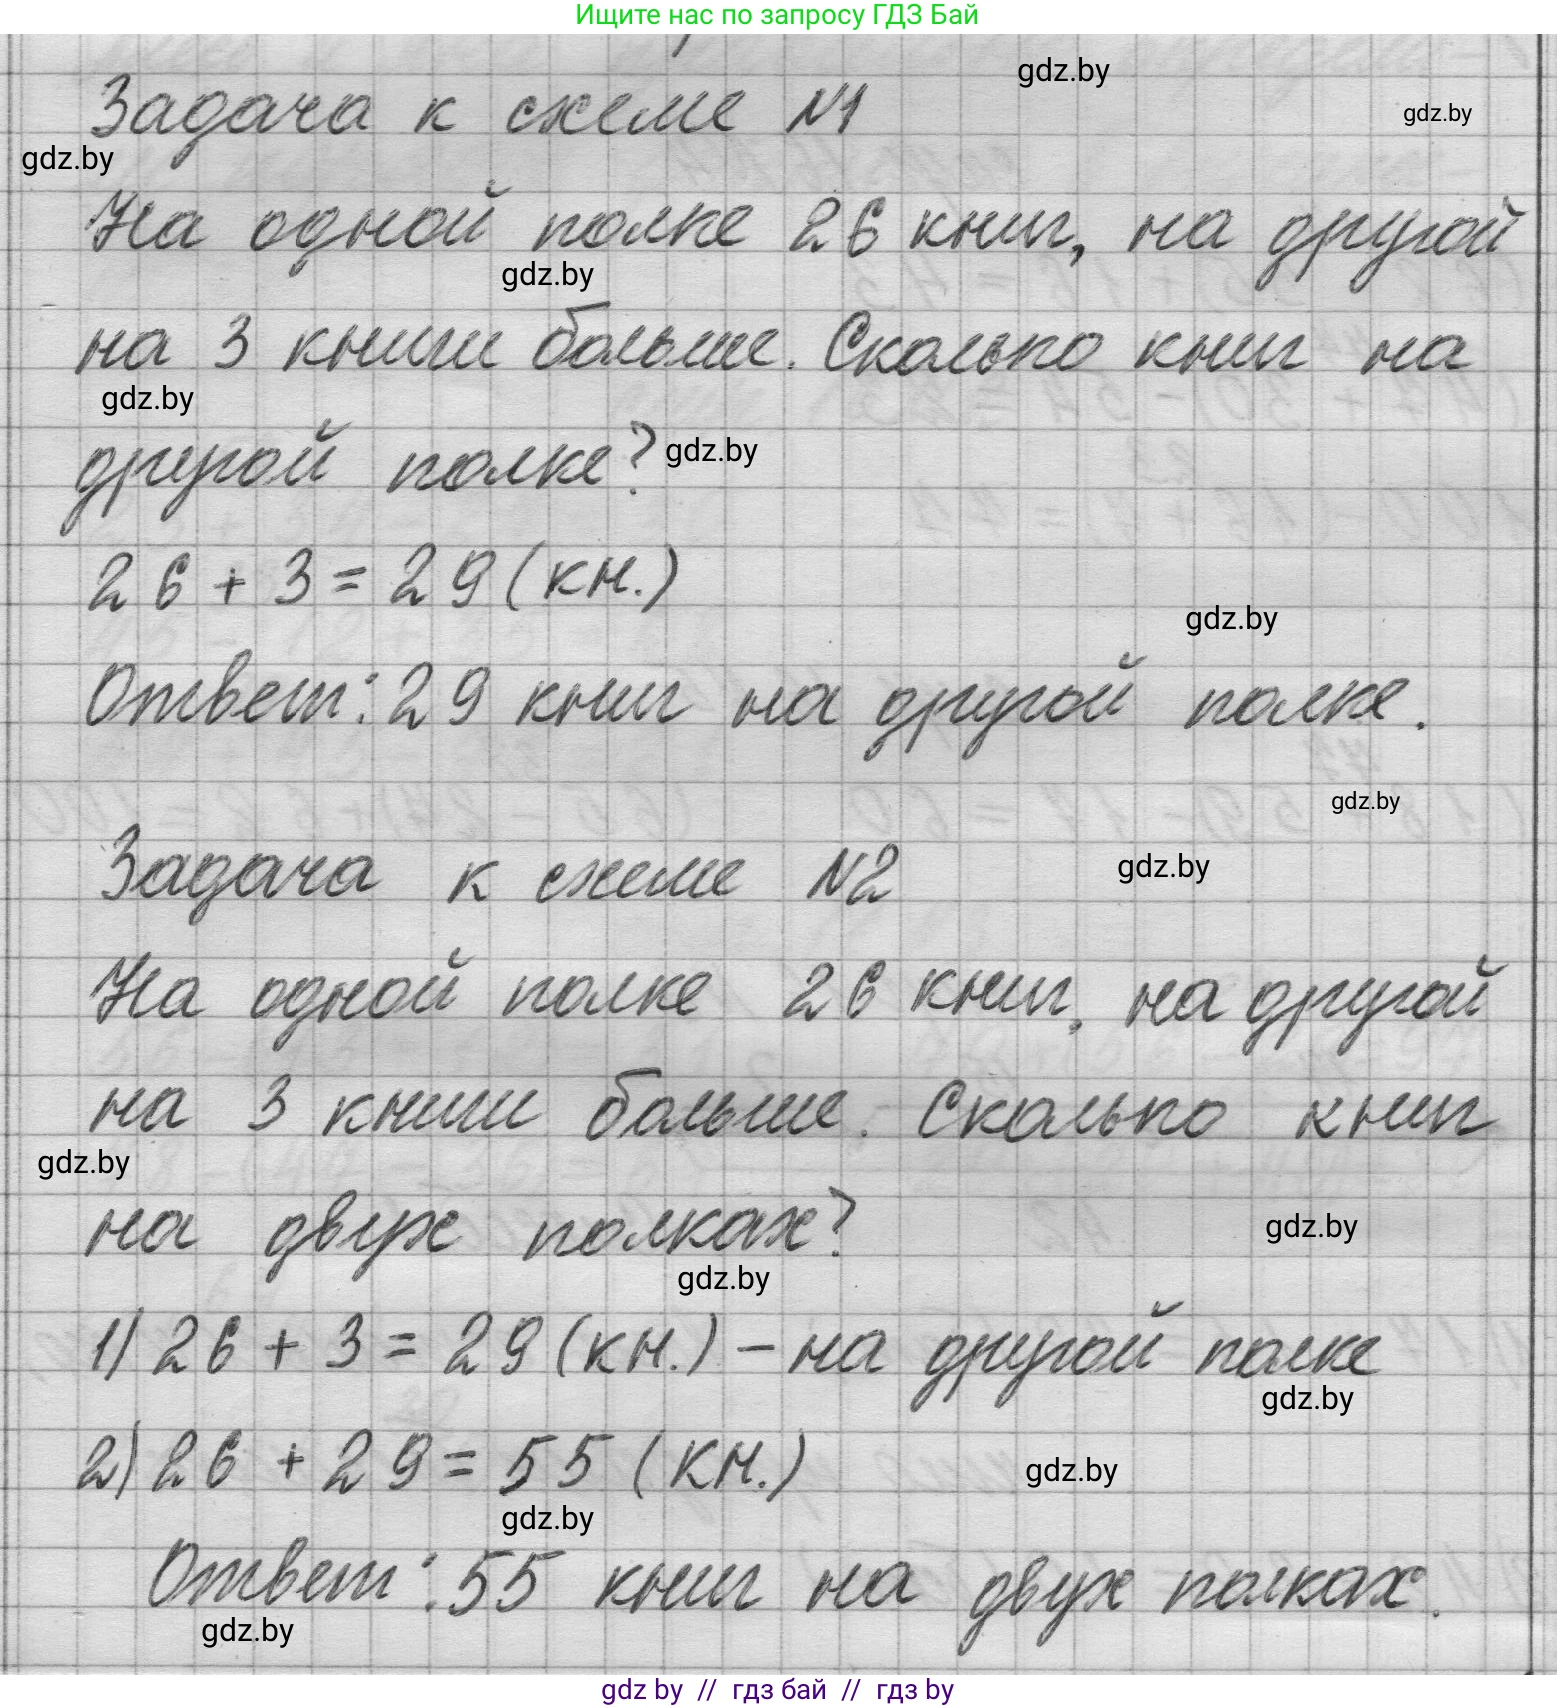 Ищите нас по запросу ГДЗ Бай
gdz.by
Задача к схеме №1
gdz.by
gdz.by
На одной полке 26 книг, на другой
gdz.by
на 3 книги больше. Сколько книг на
gdz.by
другой полке?
gdz.by
26 + 3 = 29 (кн.)
gdz.by
Ответ: 29 книг на другой полке.
gdz.by
Задача к схеме №2
gdz.by
На одной полке 26 книг, на другой
на 3 книги больше. Сколько книг
gdz.by
на двух полках?
gdz.by
gdz.by
1) 26 + 3 = 29 (кн.) – на другой полке
gdz.by
2) 26 + 29 = 55 (кн.)
gdz.by
gdz.by
Ответ: 55 книг на двух полках.
gdz.by
gdz by // гдз бай // гдз by